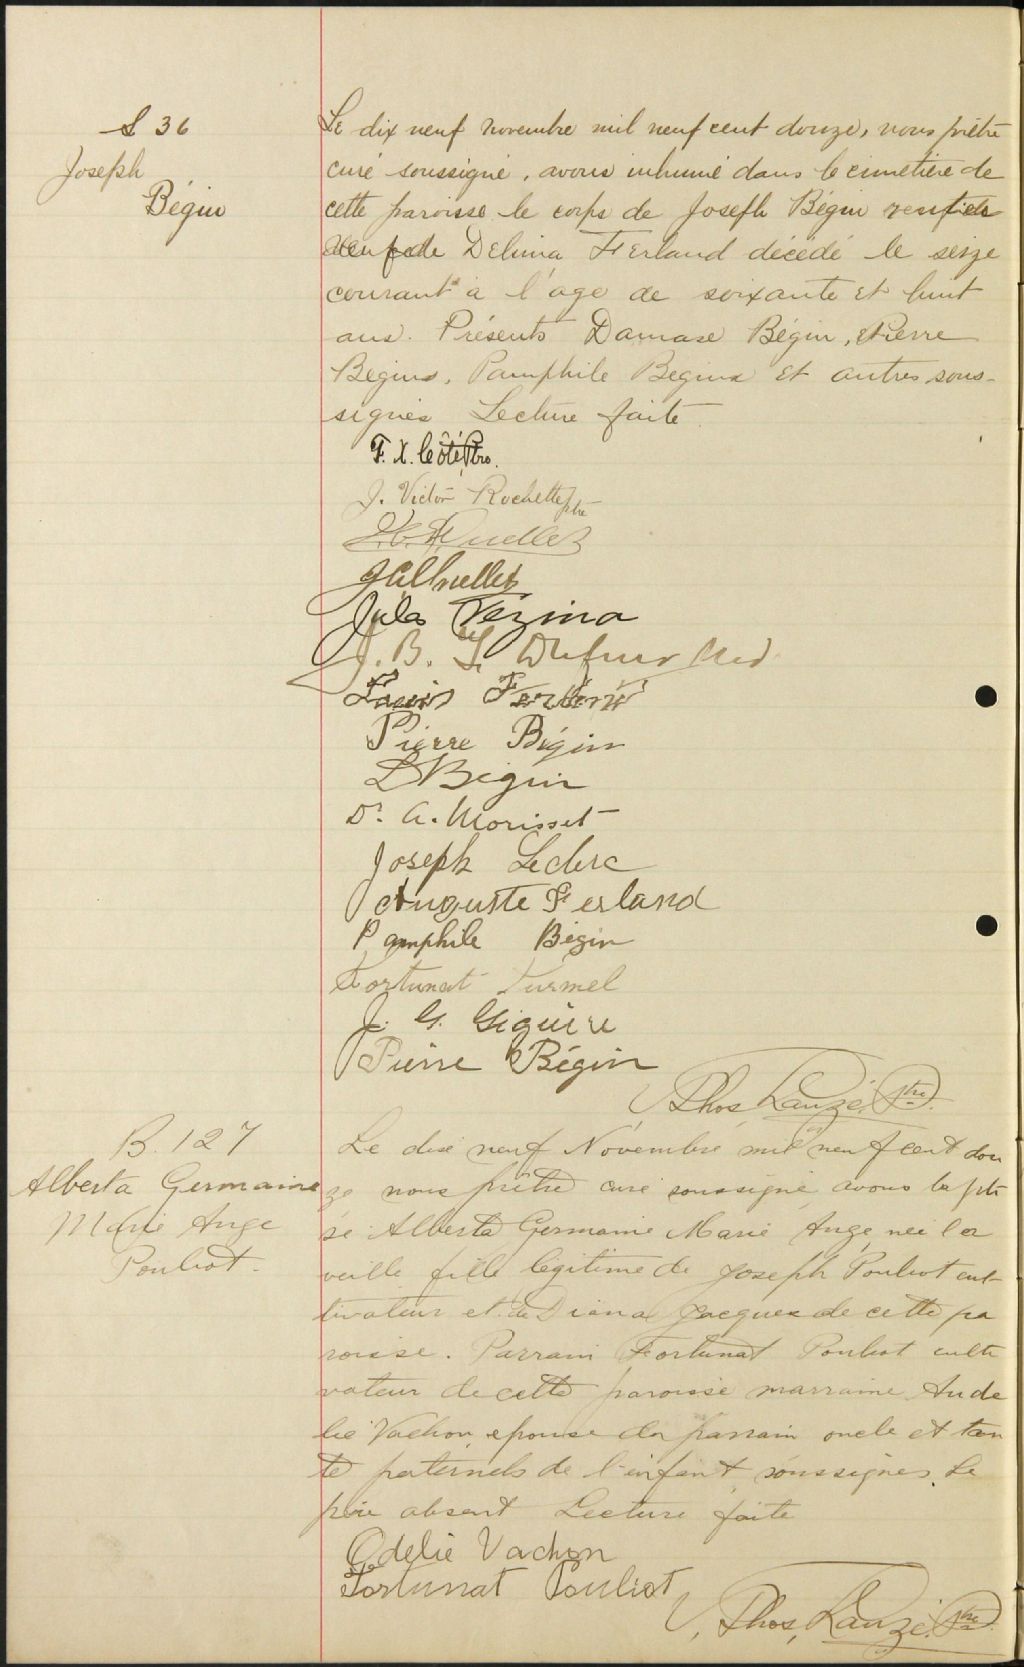 S 36
Joseph
Bégin
Le dix neuf novembre mil neuf cent douze, nous prêtre
curé soussigné, avons inhumé dans le cimetière de
cette paroisse le corps de Joseph Bégin rentier
veuf de Delima Ferland décédé le seize
courant à l'age de soixante et huit
ans. Présents Damase Bégin, Pierre
Begin, Pamphile Begin et autres sous-
signés Lecture faite.
F. X. Côté Ptre.
J. Victor Rochette ptre
Ouellet
Jules Vézina
J. B. L. Dufour
Louis Ferland
Pierre Bégin
D Begin
Dr. A. Morisset
Joseph Leclerc
Auguste Ferland
Pamphile Bégin
Fortunat Turmel
J. G. Giguère
Pierre Bégin
Thos, Lauzé, Ptre.
B. 127
Alberta Germaine
Marie Ange
Pouliot.
Le dix neuf Novembre mil neuf cent dou
ze nous prêtre curé soussigné avons bapti
sé Alberta Germaine Marie Ange née la
veille fille légitime de Joseph Pouliot cul-
tivateur et de Diana Jacques de cette pa
roisse. Parrain Fortunat Pouliot culti
vateur de cette paroisse marraine Aude
lie Vachon epouse du parrain oncle et tan
te paternels de l'enfant soussignés. Le
père absent Lecture faite
Odelie Vachon
Fortunat Pouliot
Thos, Lauzé. Ptre.